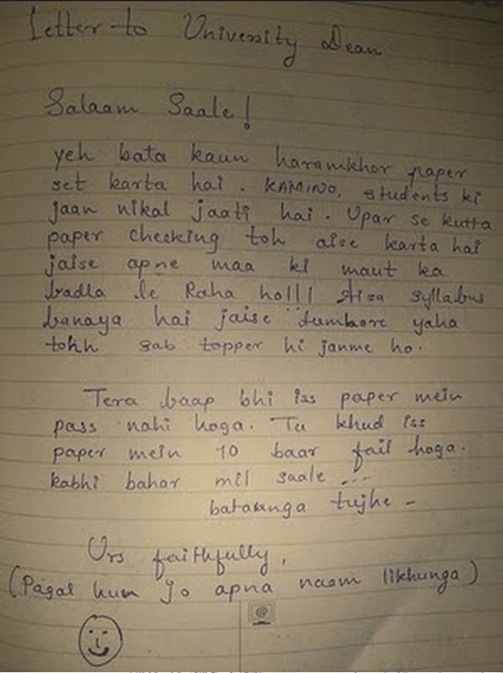 Letter to University Dean
Salaam Saale!
yeh bata kaun haramkhor paper
set karta hai. KAMINO, students ki
jaan nikal jaati hai. Upar se kutta
paper checking toh aise karta hai
jaise apne maa ki maut ka
badla le Raha ho!!! Aisa syllabus
banaya hai jaise tumhare yaha
tohh sab topper hi janme ho.
Tera baap bhi iss paper mein
pass nahi hoga. Tu khud iss
paper mein 10 baar fail hoga.
kabhi bahar mil saale ---
bataunga tujhe -
Urs faithfully,
(Pagal hum jo apna naam likhunga)